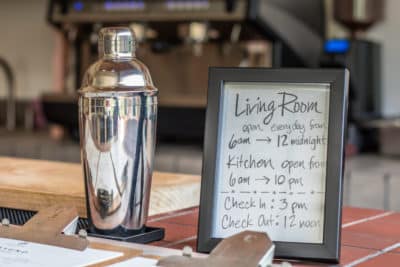 Living Room
open everyday from
6am → 12 midnight
Kitchen open from
6am → 10 pm
Check In : 3 pm
Check Out : 12 noon